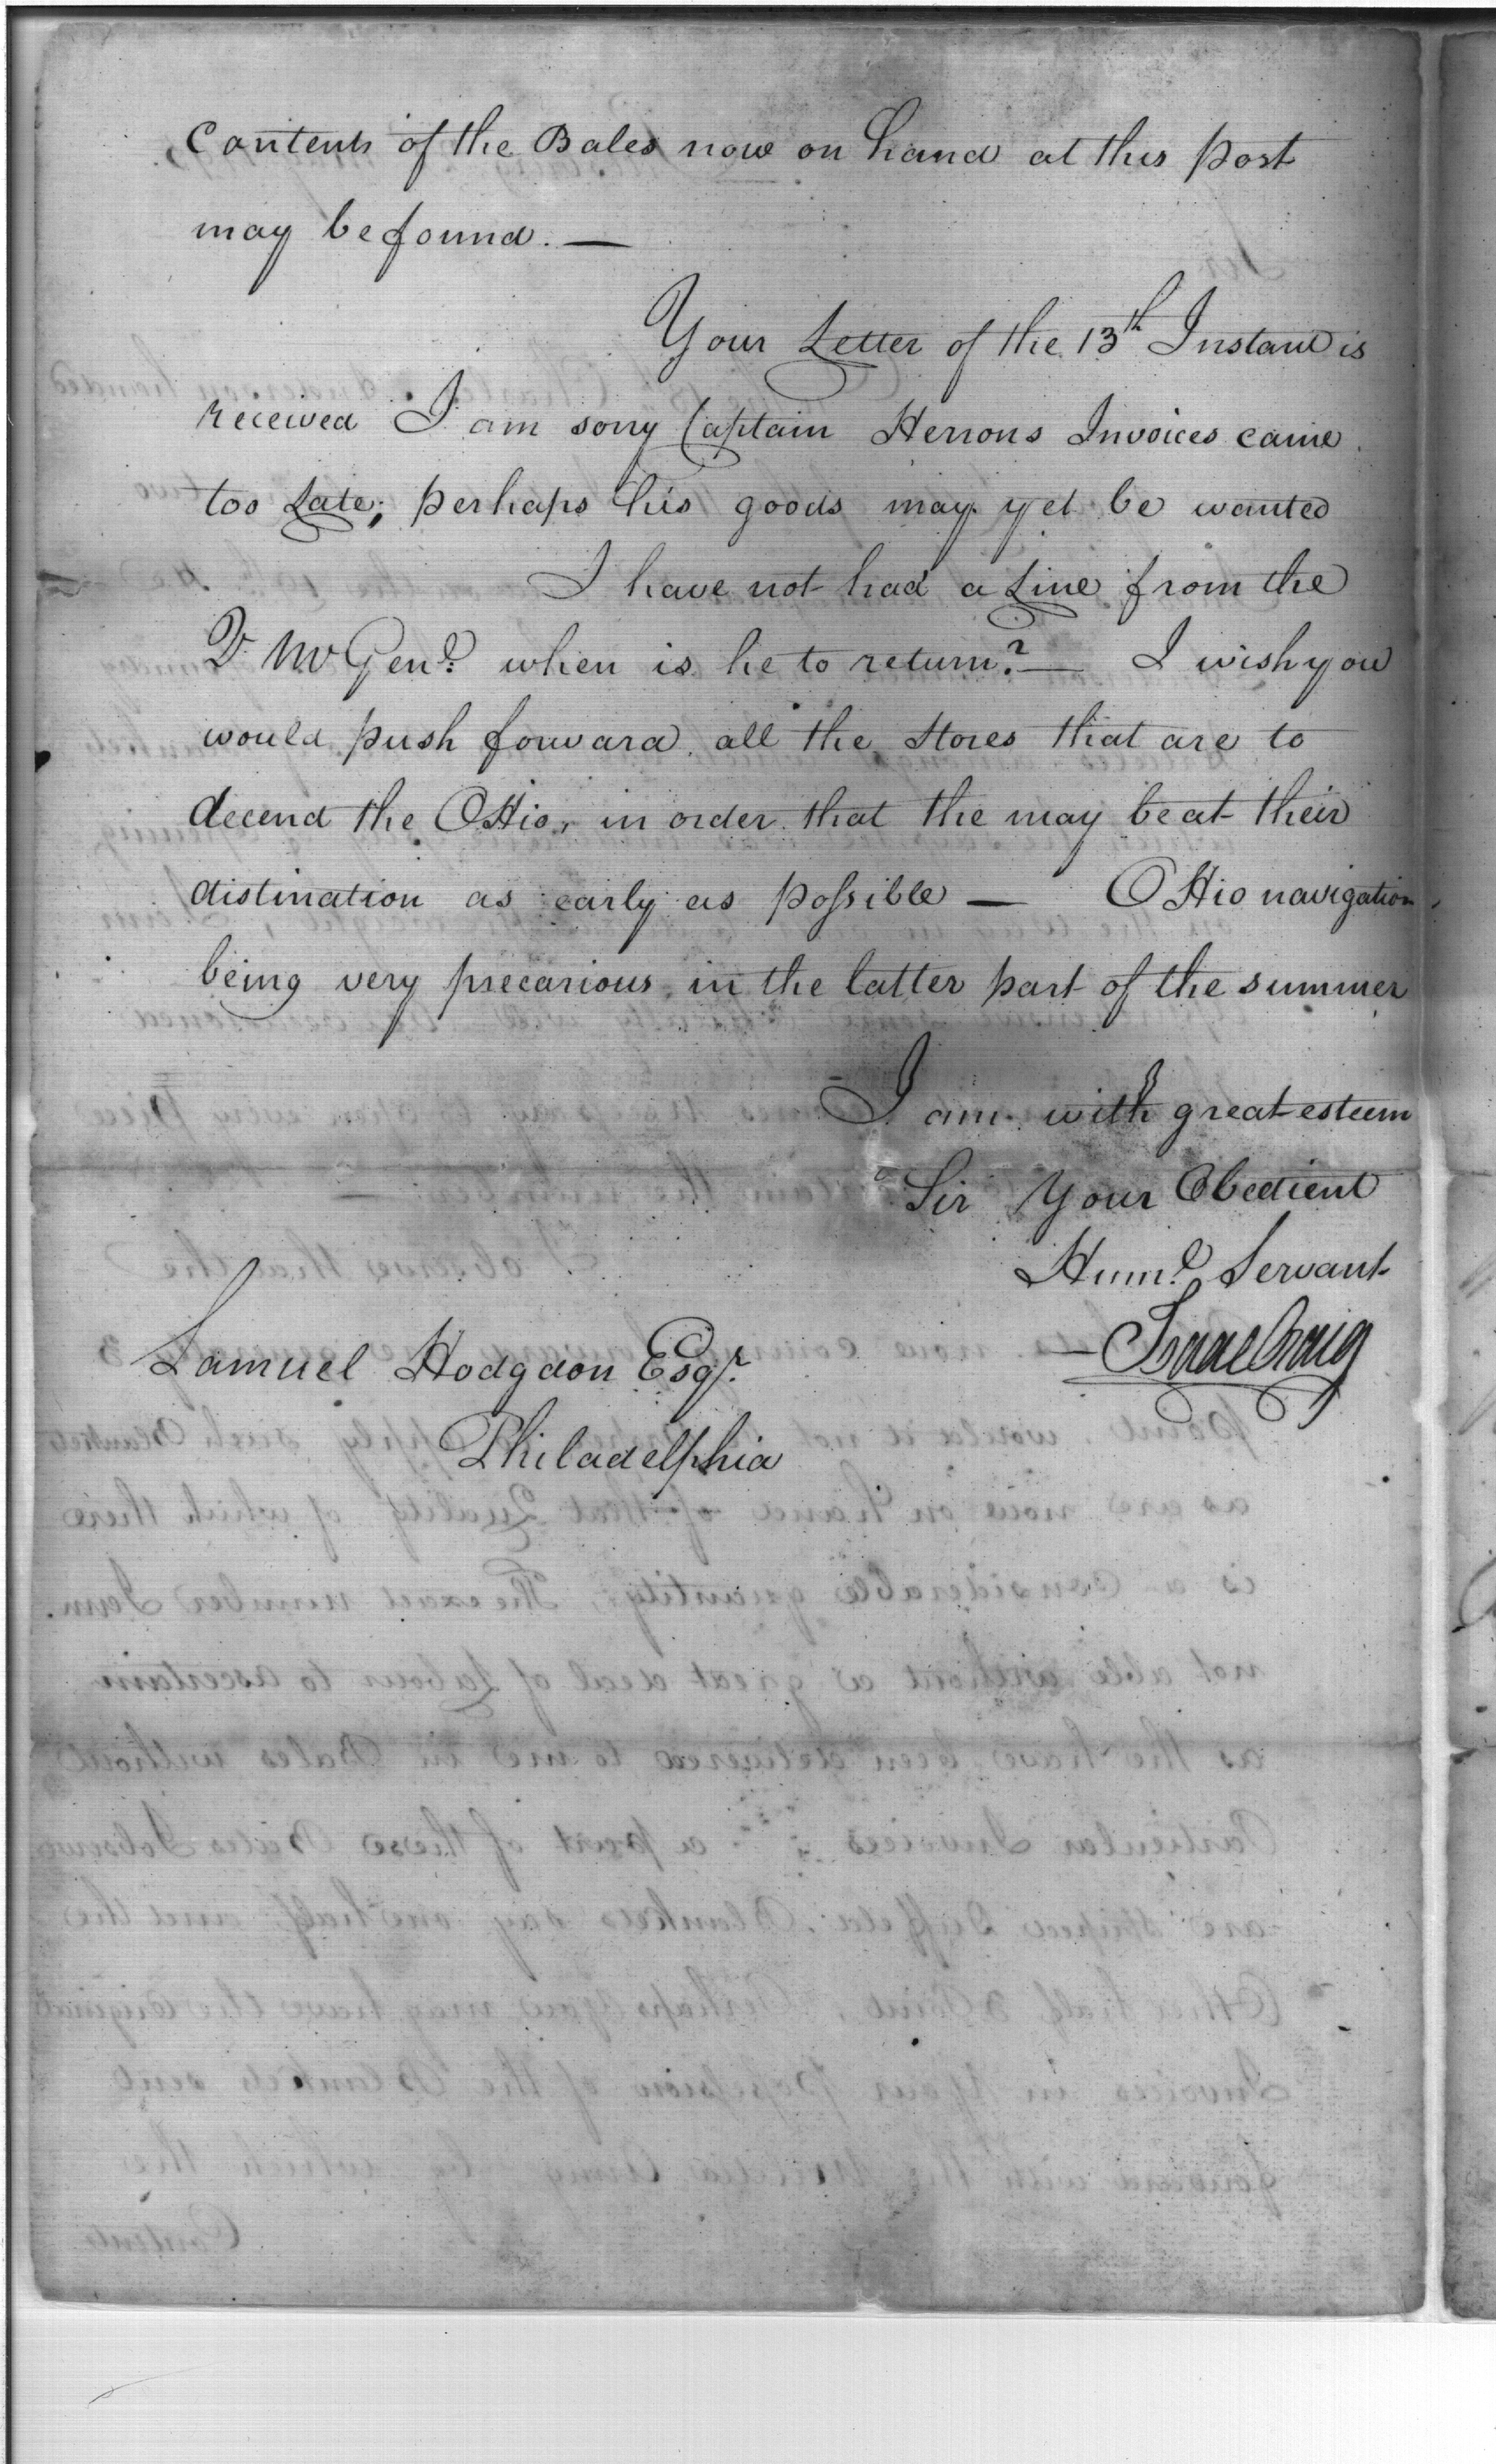 Contents of the Bales now on hand at this post
may be found. —
Your Letter of the 13th Instant is
received I am sorry Captain Herrons Invoices came
too Late; perhaps his goods may yet be wanted
I have not had a Line from the
Q Mr Genl. when is he to return? — I wish you
would push forward all the Stores that are to
decend the OHio, in order that the may be at their
distination as early as possible — OHio navigation
being very precarious in the latter part of the summer
I am with great esteem
Sir Your Obedient
Huml. Servant
Isaac Craig
Samuel Hodgdon Esqr.
Philadelphia